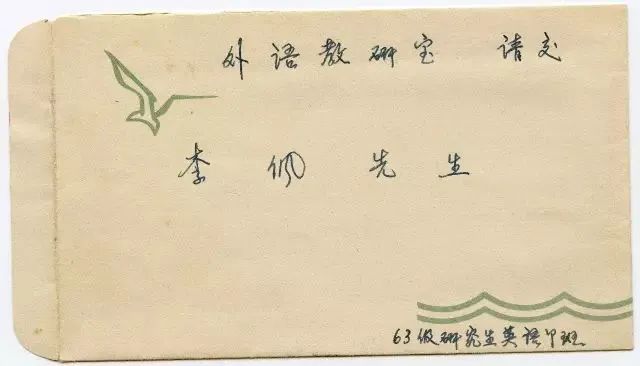 外语教研室 请交
李佩先生
63级研究生英语甲班